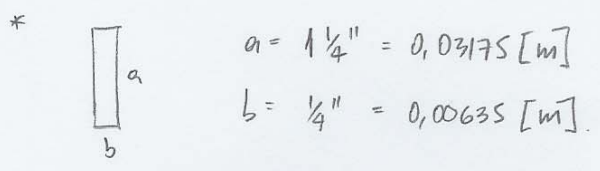 *
a
b
a = 1 1/4" = 0,03175 [m]
b = 1/4" = 0,00635 [m].